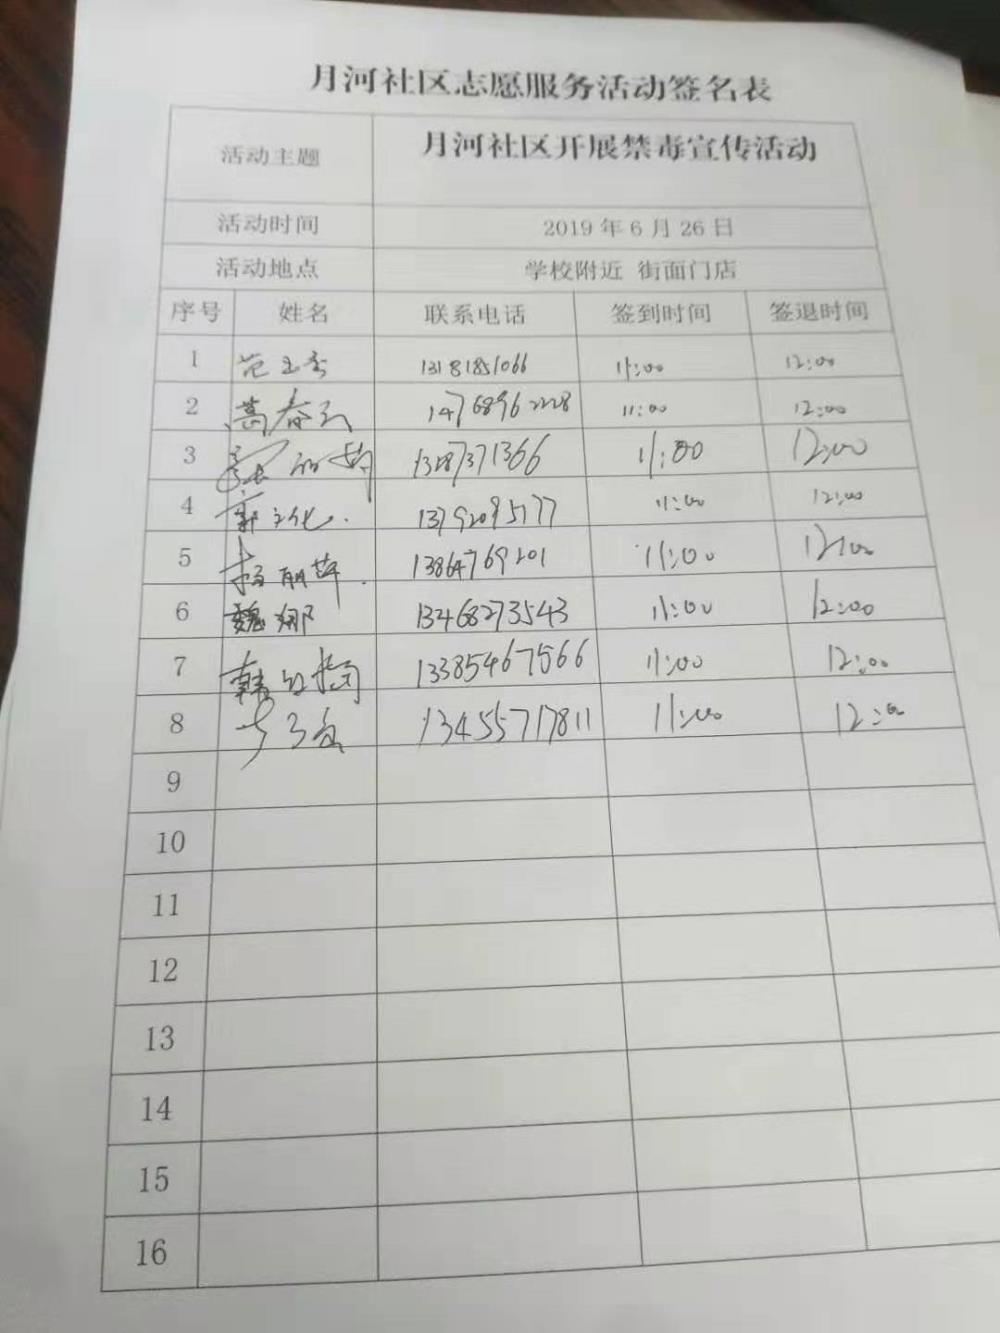 月河社区志愿服务活动签名表
活动主题 月河社区开展禁毒宣传活动
活动时间 2019 年 6 月 26 日
活动地点 学校附近 街面门店
序号 姓名 联系电话 签到时间 签退时间
1 范玉秀 13181851066 11:00 12:00
2 葛春 14768962228 11:00 12:00
3 13287371366 11:00 12:00
4 郭文化. 13792095177 11:00 12:00
5 杨丽萍. 13864769201 11:00 12:00
6 魏娜 13468273543 11:00 12:00
7 韩红梅 13385467566 11:00 12:00
8 13455717811 11:00 12:00
9
10
11
12
13
14
15
16